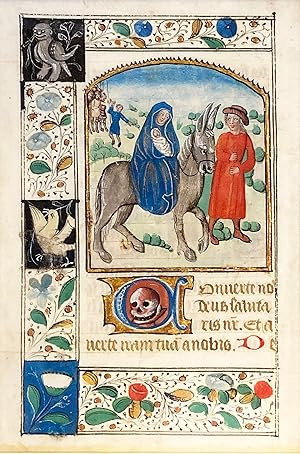 Onuerte no
deus saluta
ris nr̄. Et a
uerte iram tuā a nobis. De